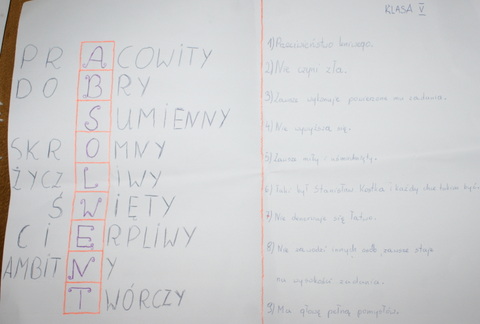 PRACOWITY
DOBRY
SUMIENNY
SKROMNY
ŻYCZLIWY
ŚWIĘTY
CIERPLIWY
AMBITNY
TWÓRCZY
KLASA V
1) Przeciwieństwo leniwego.
2) Nie czyni zła.
3) Zawsze wykonuje powierzone mu zadania.
4) Nie wywyższa się.
5) Zawsze miły i
6) Taki był Stanisław Kostka i każdy
7) Nie denerwuje się łatwo.
8) Nie zawodzi innych osób, zawsze staje
na wysokości zadania.
9) Ma głowę pełną pomysłów.